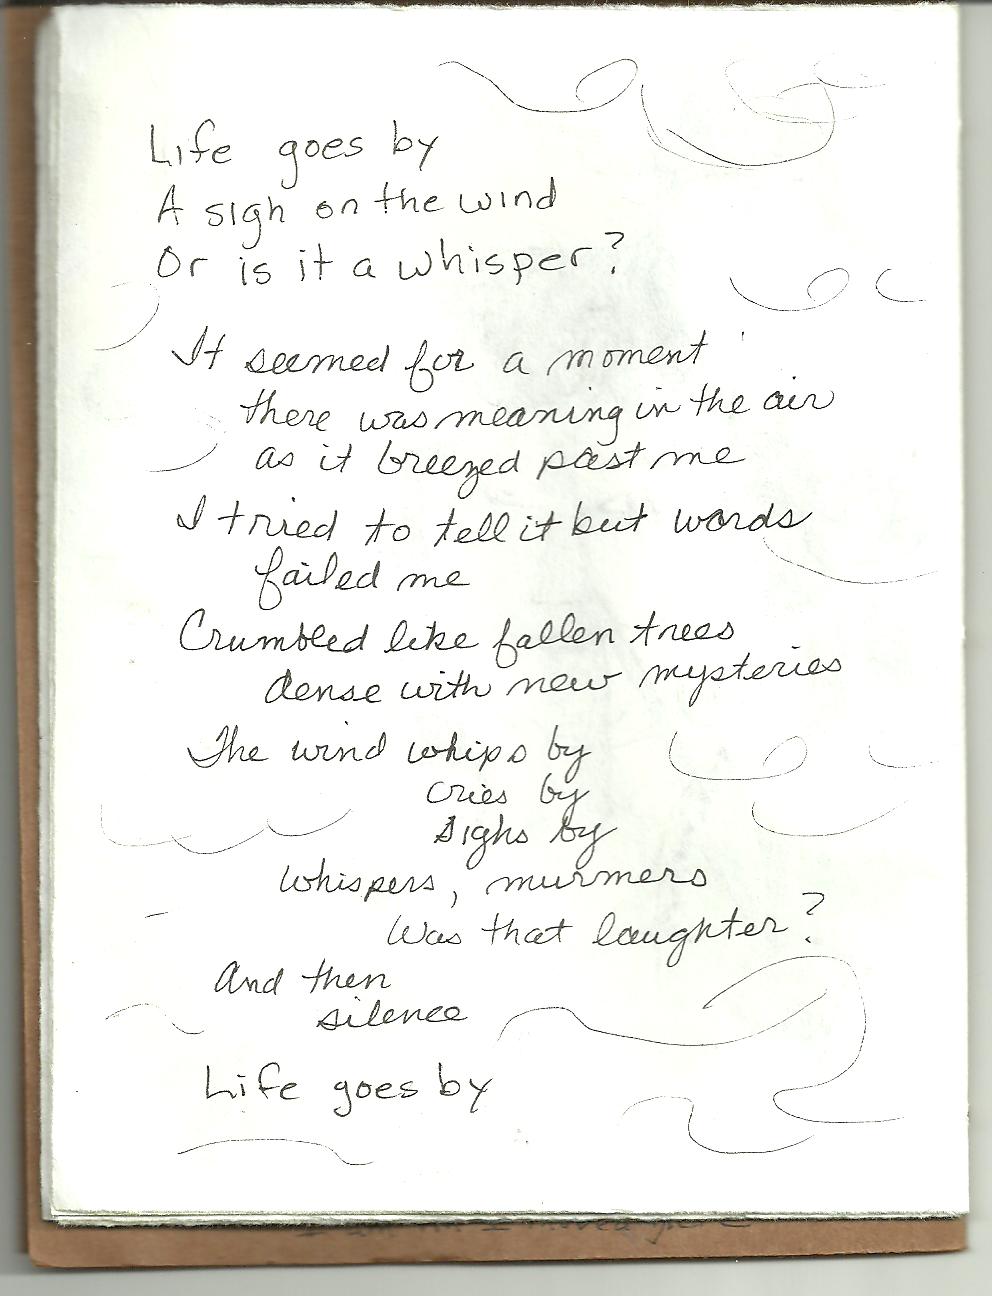 Life goes by
A sigh on the wind
Or is it a whisper?
It seemed for a moment
there was meaning in the air
as it breezed past me
I tried to tell it but words
failed me
Crumbled like fallen trees
dense with new mysteries
The wind whips by
cries by
sighs by
whispers, murmers
Was that laughter?
And then
silence
Life goes by